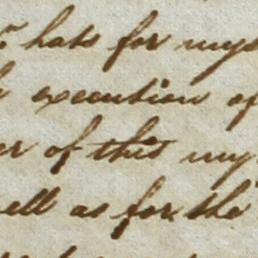 hats for mys
execution of
er of this my
ell as for the